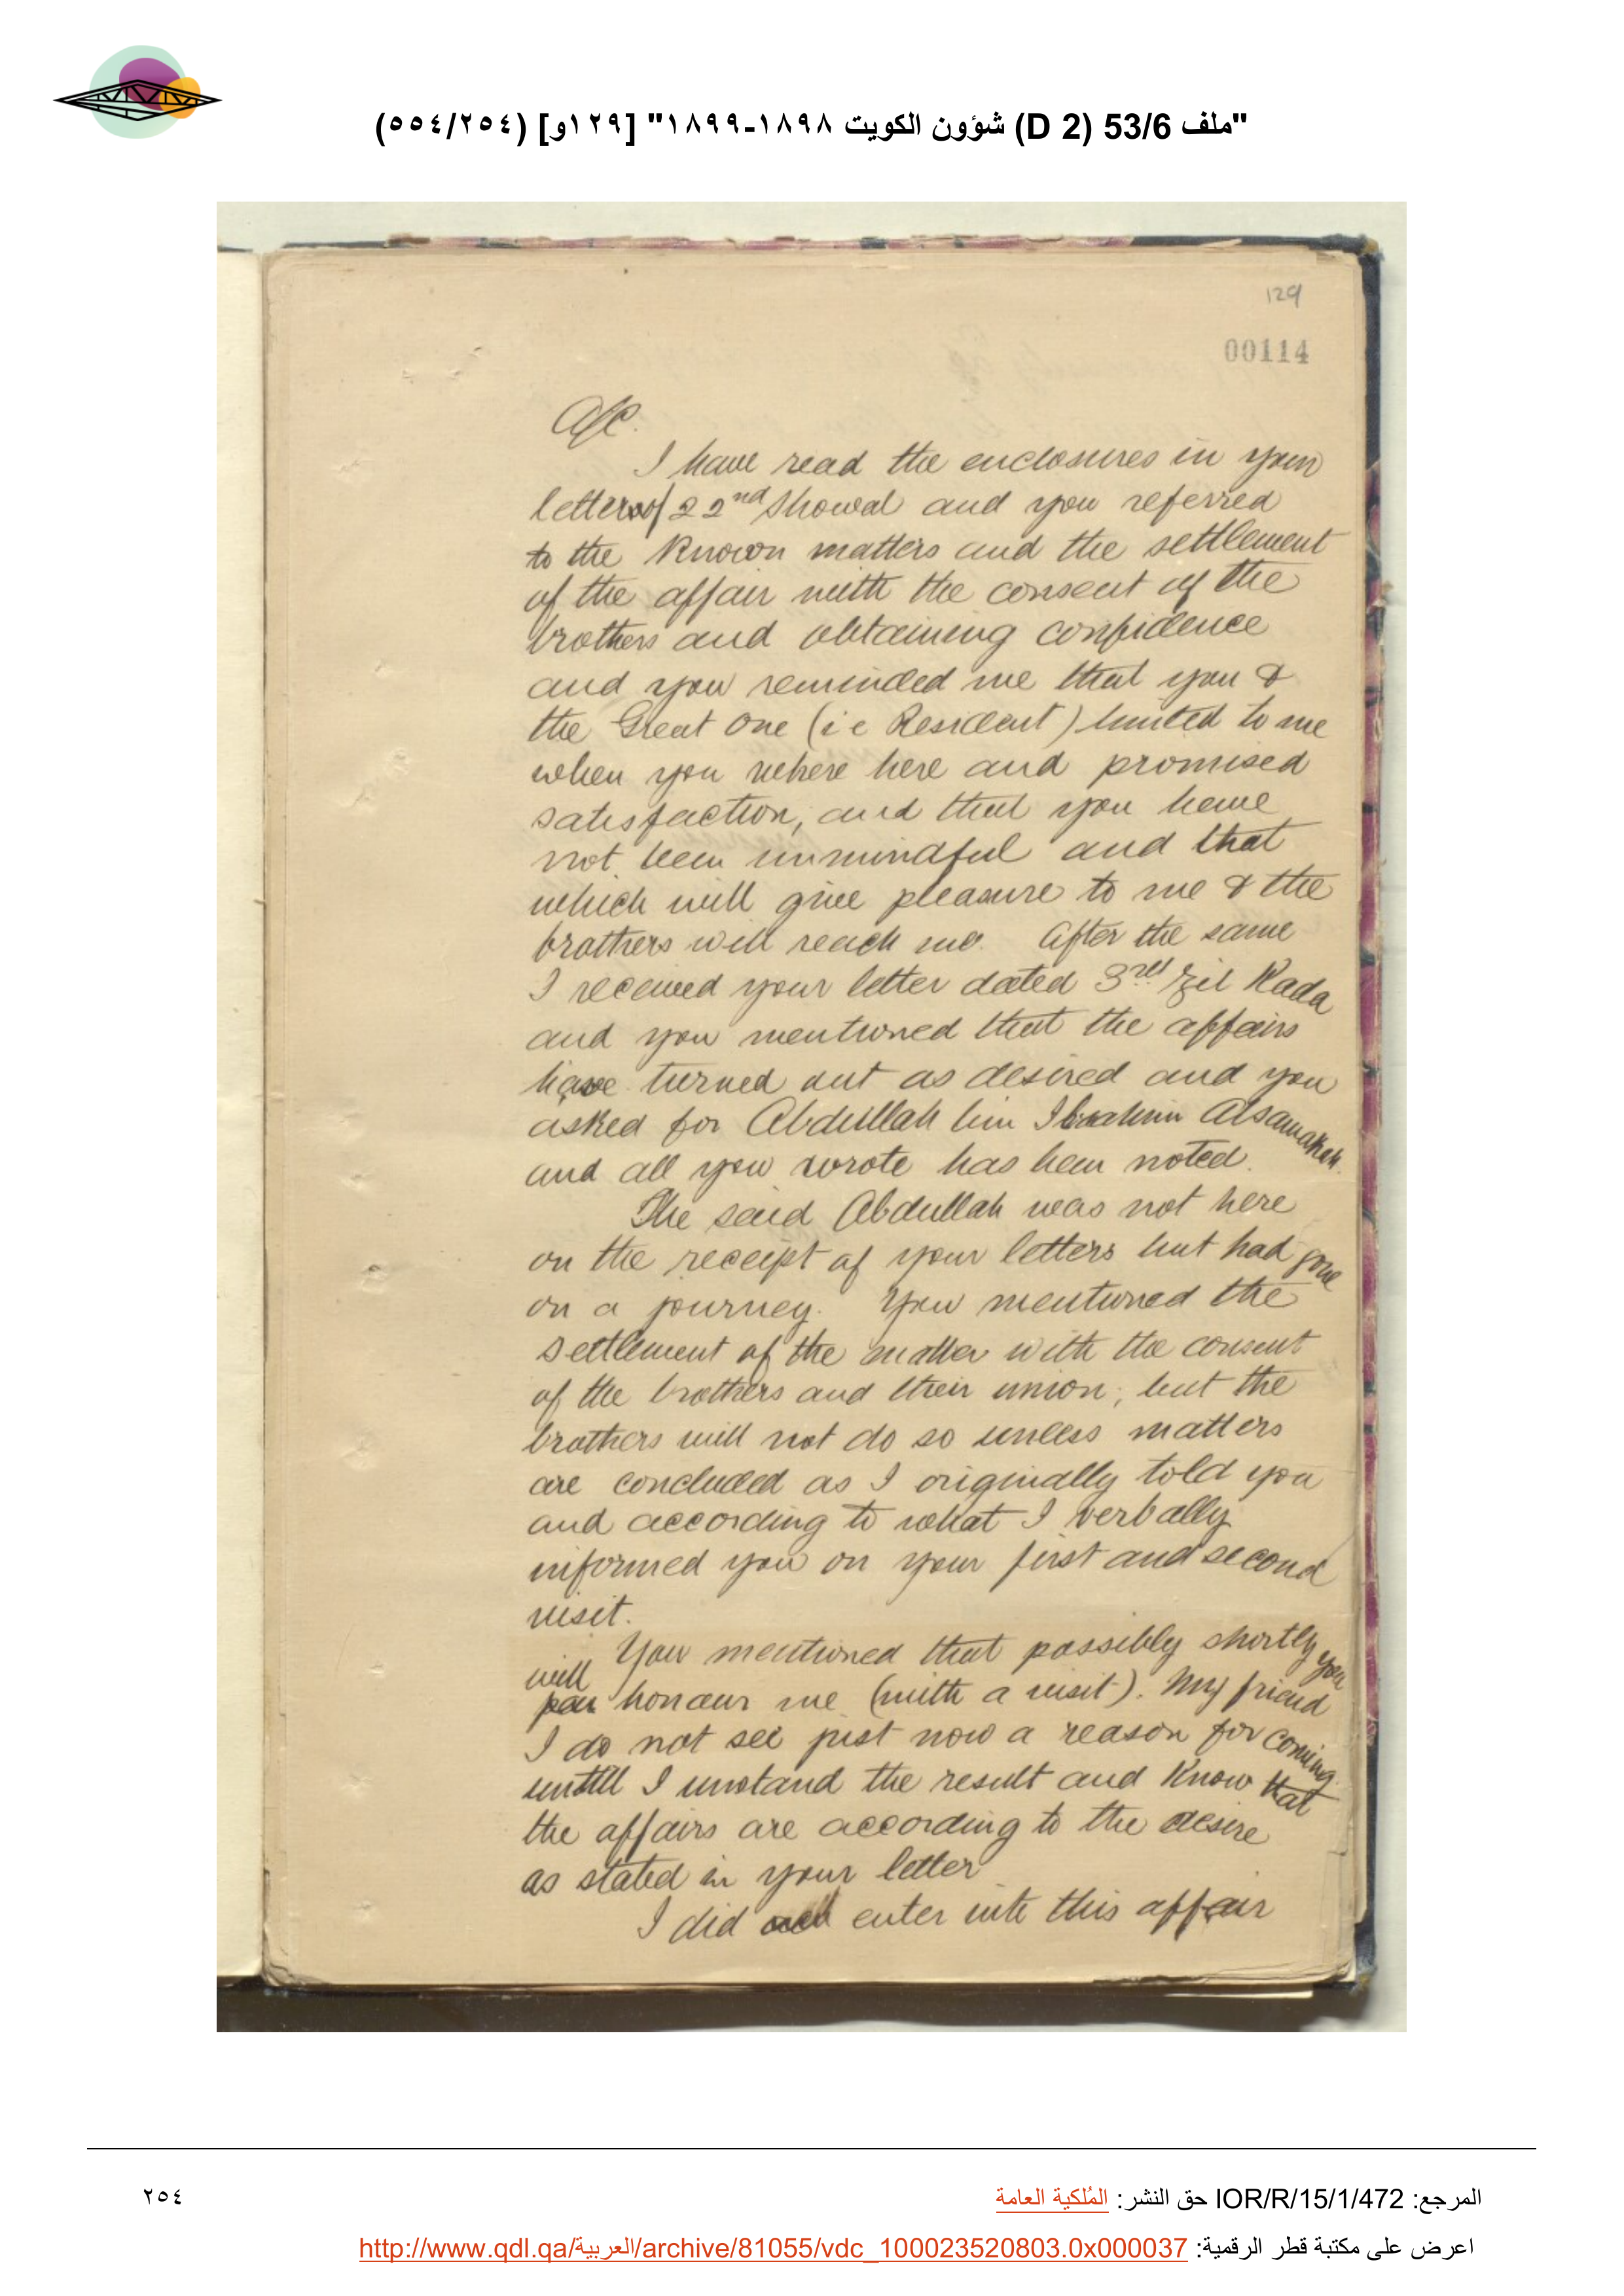 "ملف 53/6 (D 2) شؤون الكويت ١٨٩٨-١٨٩٩" [١٢٩و] (٢٥٤/٥٥٤)
129
00114
A/C.
I have read the enclosures in your
letter of 22nd Showal and you referred
to the Known matters and the settlement
of the affair with the consent of the
brothers and obtaining confidence
and you reminded me that you &
the Great One (i e Resident) hinted to me
when you where here and promised
satisfaction, and that you have
not been unmindful and that
which will give pleasure to me & the
brothers will reach me. After the same
I received your letter dated 3rd Zil Kada
and you mentioned that the affairs
have turned out as desired and you
asked for Abdullah bin Ibrahim Alsamakeh.
and all you wrote has been noted.
The said Abdullah was not here
on the receipt of your letters but had gone
on a journey. You mentioned the
settlement of the matter with the consent
of the brothers and their union; but the
brothers will not do so unless matters
are concluded as I originally told you
and according to what I verbally
informed you on your first and second
visit.
You mentioned that possibly shortly you
will honour me (with a visit). My friend
I do not see just now a reason for coming
untill I unstand the result and Know that
the affairs are according to the desire
as stated in your letter
I did enter into this affair
المرجع: IOR/R/15/1/472 حق النشر: المُلكية العامة
٢٥٤
اعرض على مكتبة قطر الرقمية: http://www.qdl.qa/العربية/archive/81055/vdc_100023520803.0x000037